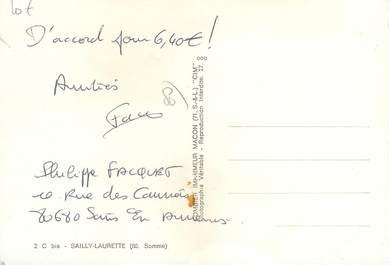 lot
D'accord pour 6,40€ !
Amitiés
(80)
Philippe FACQUET
Rue des
80680 Sains En Amiénois
2 C bis - SAILLY-LAURETTE (80. Somme)
COMBIER IMPRIMEUR MACON (71. S.-&-L.) "CIM"
Photographie Véritable - Reproduction Interdite.